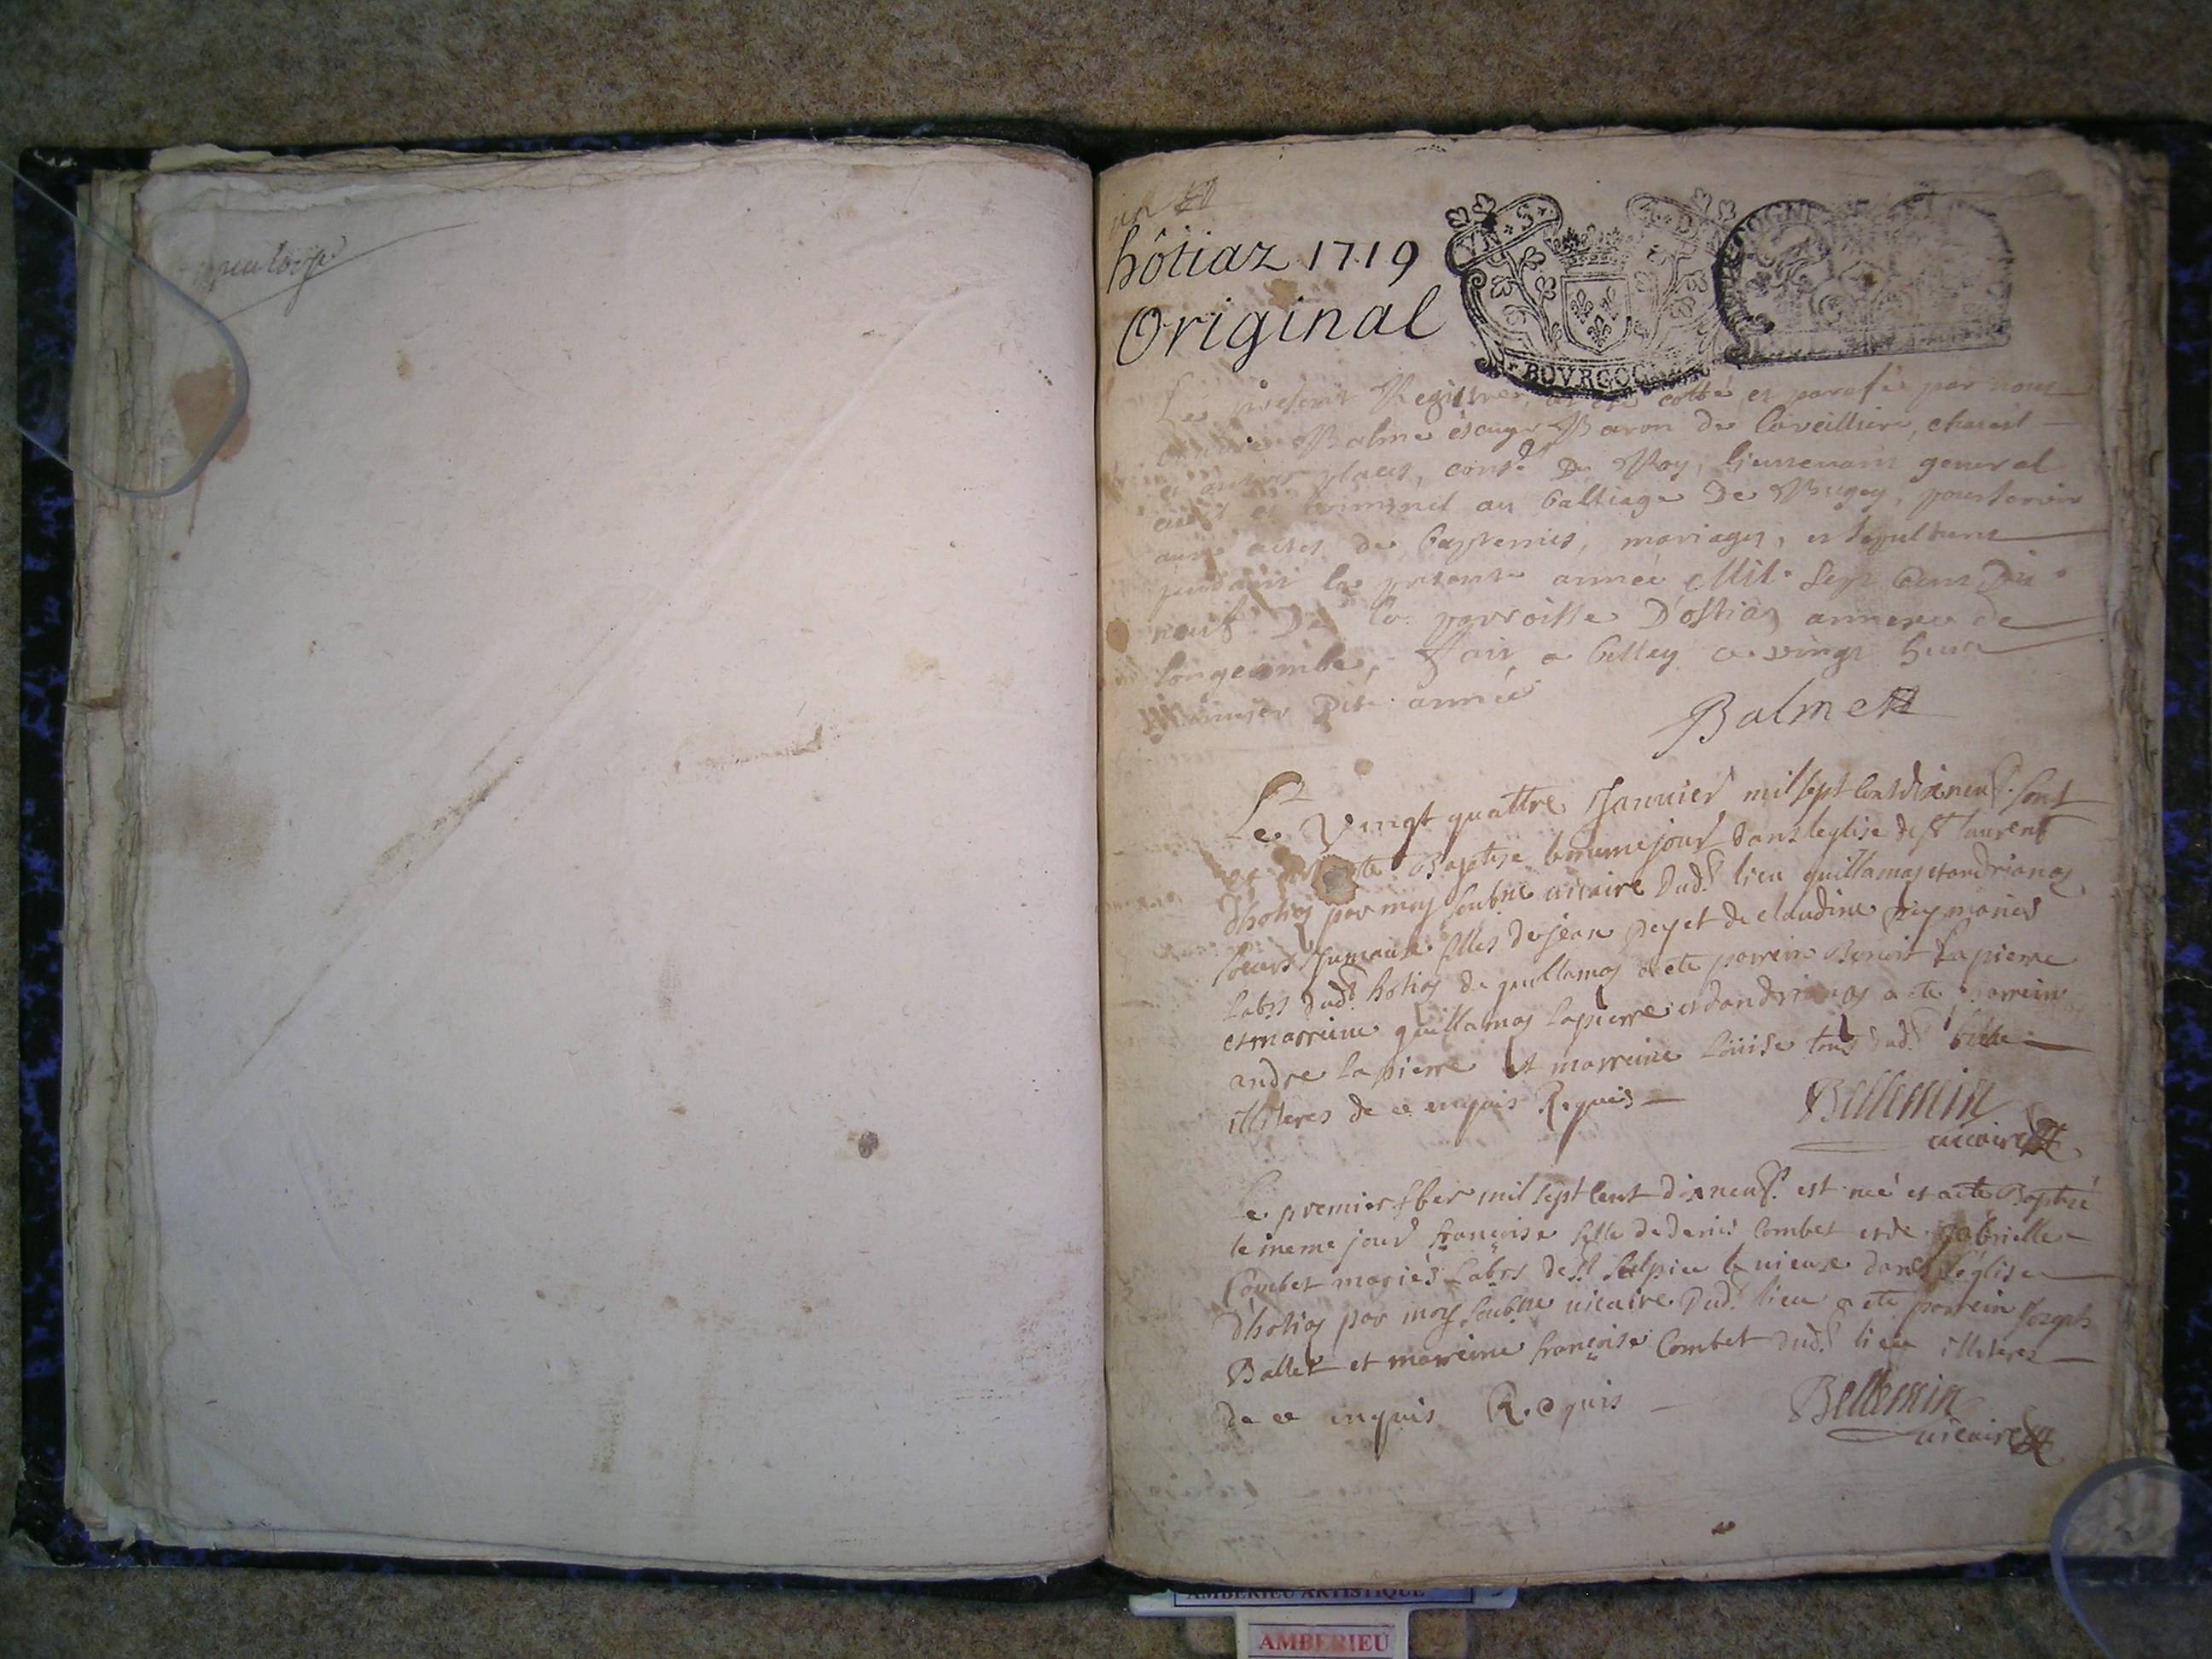 hôtiaz 1719
Original
BOVRGOGNE
Le present Registre a esté cotté et parafé par nous
Balme escuyer Baron De Coveilliere, chareil
et autres places, cons.r Du Roy, lieutenant general
civil et criminel au balliage De Bugey, pour servir
aux actes de baptemes, mariages, et sepultures
pendant la presente année Mil Sept Cent Dix
neuf De la parroisse D'ostiaz annexe de
longecombe, fait a belley ce vingt
janvier Dite année
Balme
Le Vingt quattre Januier mil sept Cent dixneuf sont
Baptise le meme jour dans leglise de st laurent
d'hotiaz par moy soubne uicaire Dud.t lieu guillamaz et andrianaz
soeurs Jumaux filles de jean pey et de claudine pey mariés
Labrs dud.t hotiaz de guillamaz a ete parrein Benoit Lapierre
et marreine guillamaz lapierre et dandrianaz a ete parrein
andre la pierre et marreine Loüise tous dud.t
illiteres de ce enquis Requis
Bellemin
uicaire
Le premier fber mil sept Cent dixneuf est neé et a ete Baptisé
le meme jour françoise fille de denis Combet et de gabrielle
Combet mariés Labrs de st Sulpice le uieux dans l'église
d'hotiaz par moy soubne uicaire Dud.t lieu a ete parrein Joseph
Ballet et marreine françoise Combet dud.t lieu illiteres
de ce enquis Requis
Bellemin
uicaire
AMBERIEU ARTISTIQUE
AMBERIEU